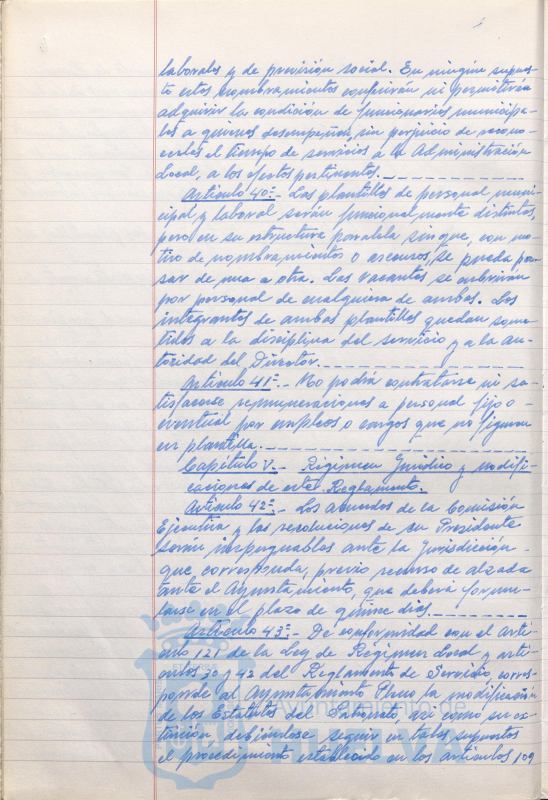 laborales y de previsión social. En ningún supues-
to estos nombramientos conferirán ni permitirán
adquirir la condición de funcionarios municipa-
les a quienes desempeñen, sin perjuicio de recono-
cerles el tiempo de servicios a la Administración
Local, a los efectos pertinentes.
Artículo 40º.- Las plantillas de personal muni-
cipal y laboral serán funcionalmente distintas,
pero en su estructura paralela sin que, con mo-
tivo de nombramientos o ascensos, se pueda pa-
sar de una a otra. Las vacantes se cubrirán
por personal de cualquiera de ambas. Los
integrantes de ambas plantillas quedan some-
tidos a la disciplina del servicio y a la au-
toridad del Director.
Artículo 41º.- No podrá contratarse ni sa-
tisfacerse remuneraciones a personal fijo o
eventual por empleos o cargos que no figuran
en plantilla.
Capítulo V.- Régimen Jurídico y modifi-
caciones de este Reglamento.
Artículo 42º.- Los acuerdos de la Comisión
Ejecutiva y las resoluciones de su Presidente
serán impugnables ante la Jurisdicción
que corresponda, previo recurso de alzada
ante el Ayuntamiento, que deberá formu-
larse en el plazo de quince días.
Artículo 43º.- De conformidad con el artí-
culo 121 de la Ley de Régimen Local y artí-
culos 30 y 42 del Reglamento de Servicio, corres-
ponde al Ayuntamiento Pleno la modificación
de los Estatutos del Patronato, así como su ex-
tinción debiéndose seguir en tales supuestos
el procedimiento establecido en los artículos 109
Ayuntamiento de
HUELVA